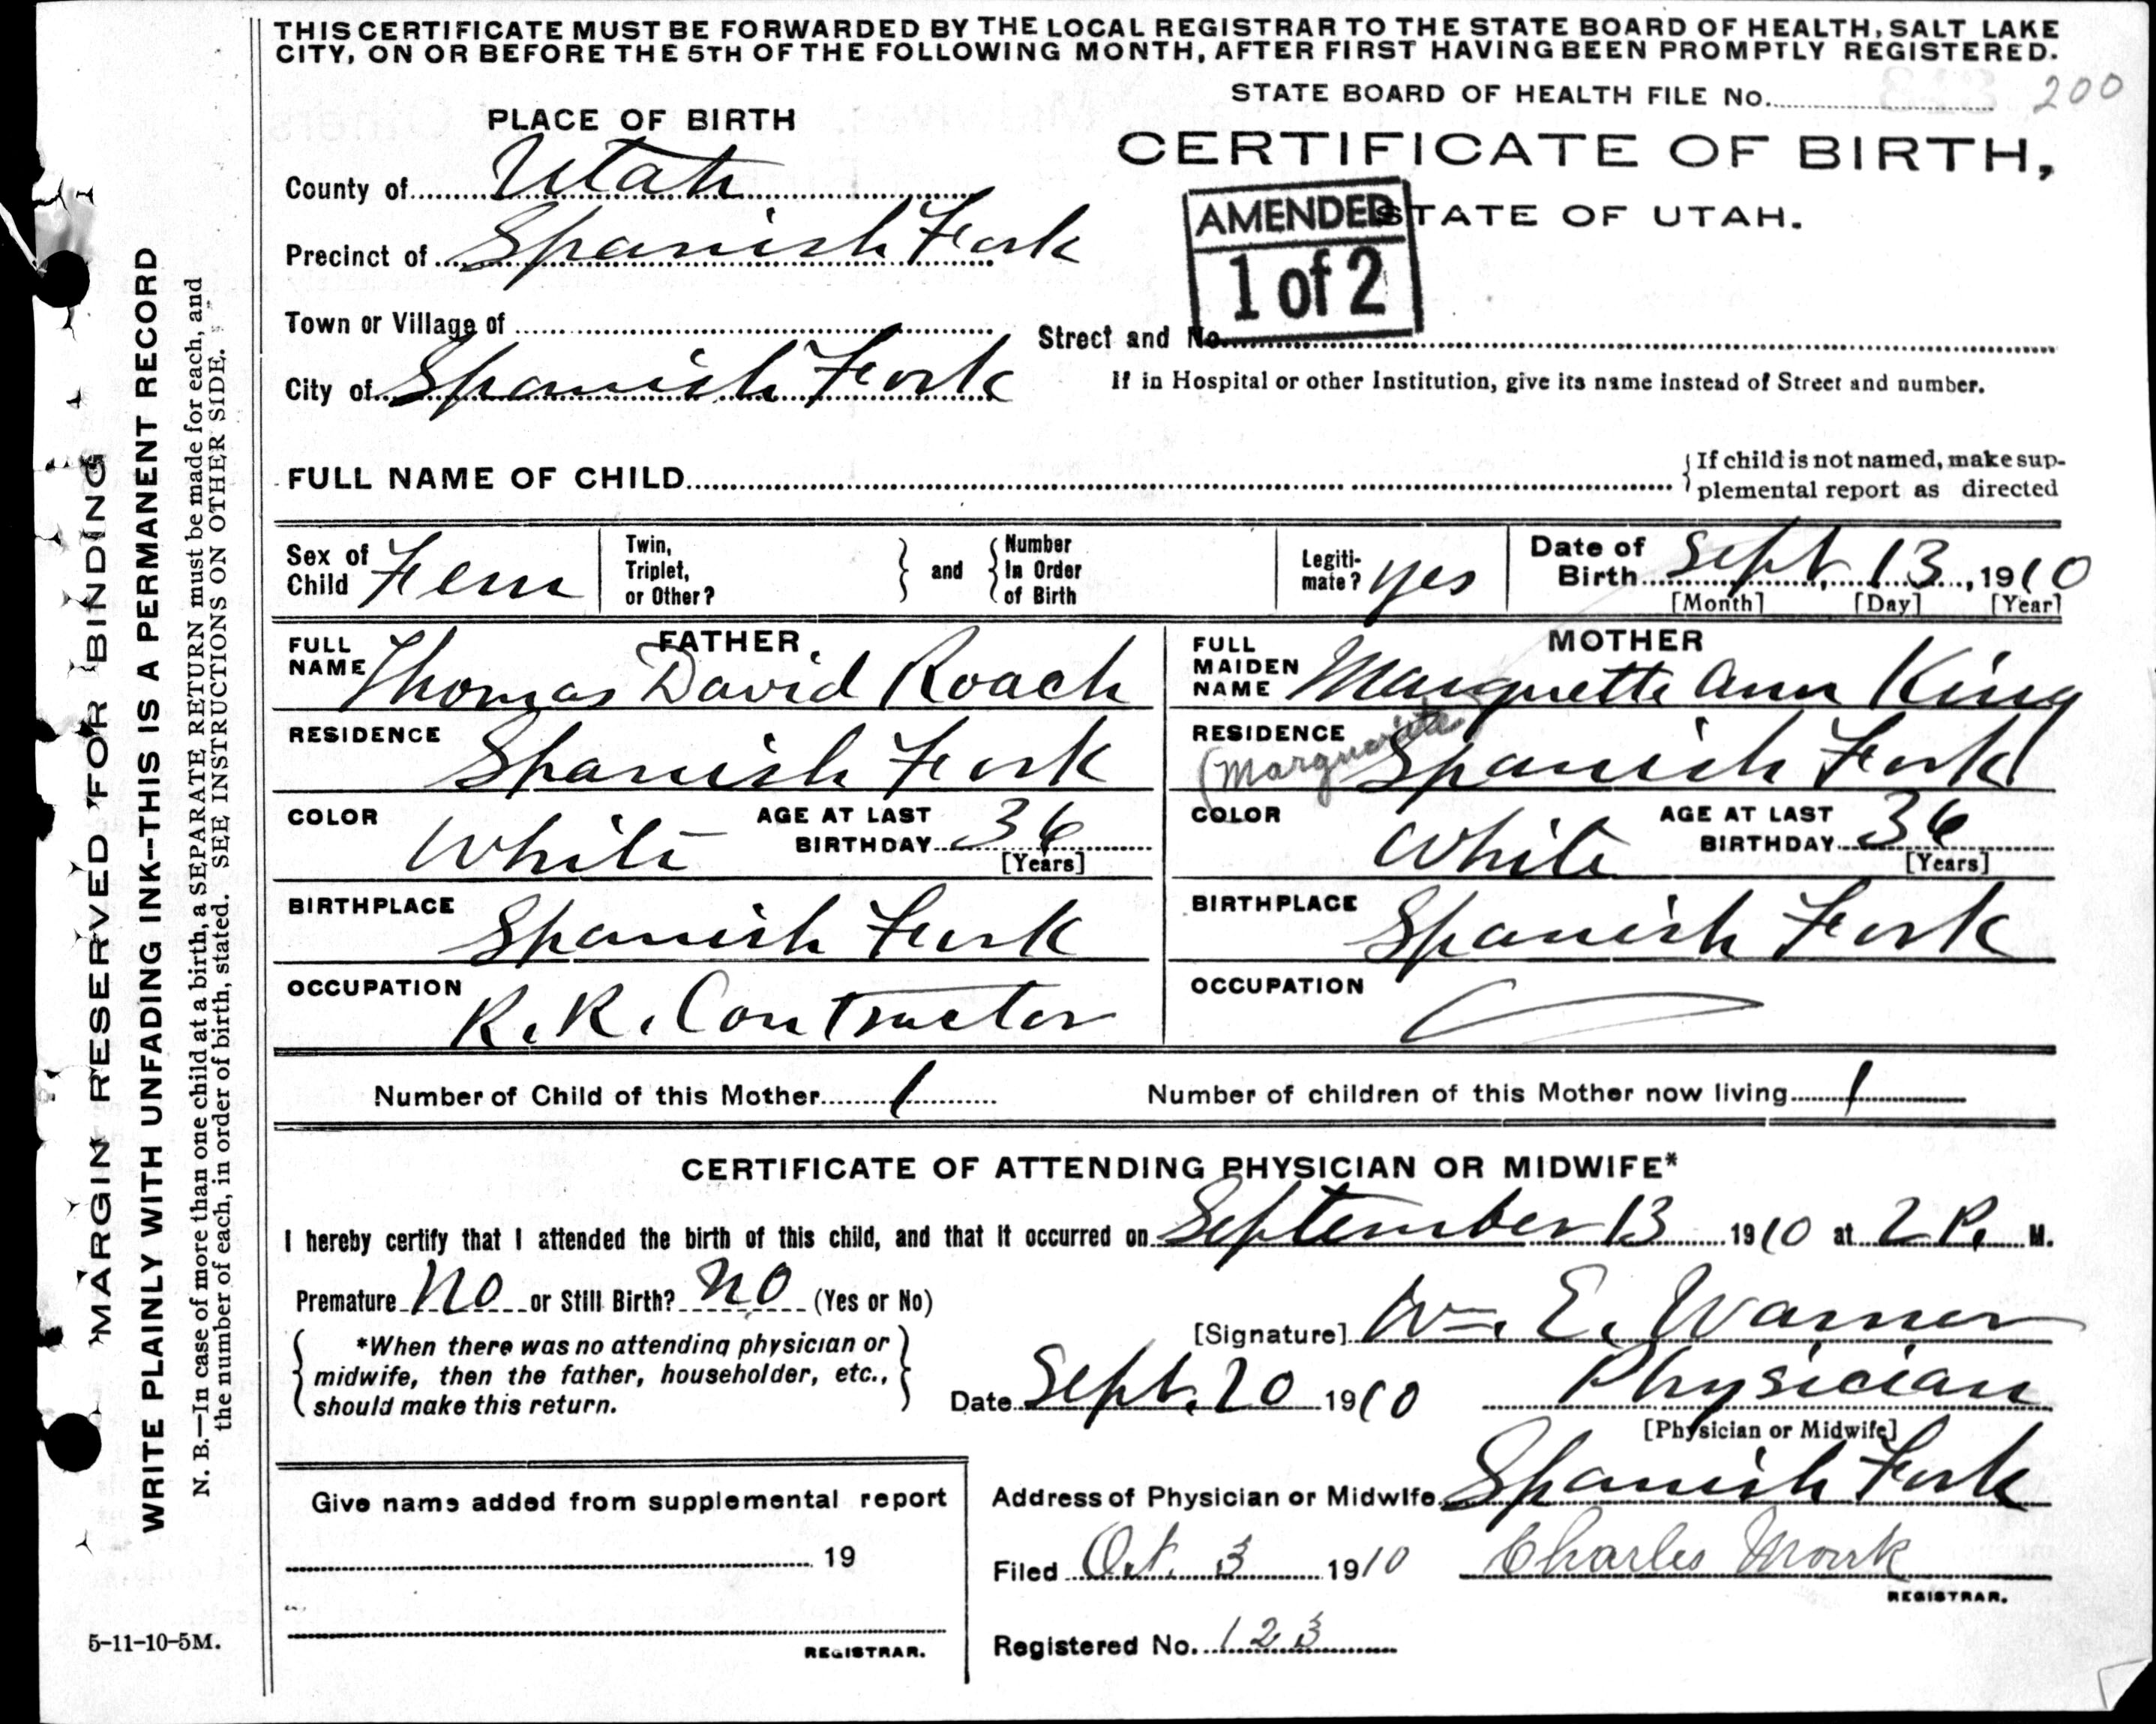 THIS CERTIFICATE MUST BE FORWARDED BY THE LOCAL REGISTRAR TO THE STATE BOARD OF HEALTH, SALT LAKE
CITY, ON OR BEFORE THE 5TH OF THE FOLLOWING MONTH, AFTER FIRST HAVING BEEN PROMPTLY REGISTERED.
STATE BOARD OF HEALTH FILE No. 200
PLACE OF BIRTH
CERTIFICATE OF BIRTH,
STATE OF UTAH.
AMENDED
1 of 2
County of Utah
Precinct of Spanish Fork
Town or Village of
Street and No.
City of Spanish Fork
If in Hospital or other Institution, give its name instead of Street and number.
FULL NAME OF CHILD
If child is not named, make sup-
plemental report as directed
Sex of Child Fem
Twin, Triplet, or Other?
and
Number In Order of Birth
Legiti-mate? yes
Date of Birth Sept, 13, 1910
[Month] [Day] [Year]
FATHER
FULL NAME Thomas David Roach
RESIDENCE Spanish Fork
COLOR White AGE AT LAST BIRTHDAY 36
[Years]
BIRTHPLACE Spanish Fork
OCCUPATION R.R. Contractor
MOTHER
FULL MAIDEN NAME Marguette Ann King
(Marguarite)
RESIDENCE Spanish Fork
COLOR White AGE AT LAST BIRTHDAY 36
[Years]
BIRTHPLACE Spanish Fork
OCCUPATION
Number of Child of this Mother 1
Number of children of this Mother now living 1
CERTIFICATE OF ATTENDING PHYSICIAN OR MIDWIFE*
I hereby certify that I attended the birth of this child, and that it occurred on September 13 1910 at 2 P. M.
Premature No or Still Birth? no (Yes or No)
*When there was no attending physician or
midwife, then the father, householder, etc.,
should make this return.
[Signature] Wm. E. Warner
Date Sept. 20 1910
Physician
[Physician or Midwife]
Address of Physician or Midwife Spanish Fork
Give name added from supplemental report
19
REGISTRAR.
Filed Oct. 3 1910 Charles Monk
REGISTRAR.
Registered No. 123
5-11-10-5M.
MARGIN RESERVED FOR BINDING
WRITE PLAINLY WITH UNFADING INK--THIS IS A PERMANENT RECORD
N. B.—In case of more than one child at a birth, a SEPARATE RETURN must be made for each, and
the number of each, in order of birth, stated. SEE INSTRUCTIONS ON OTHER SIDE.